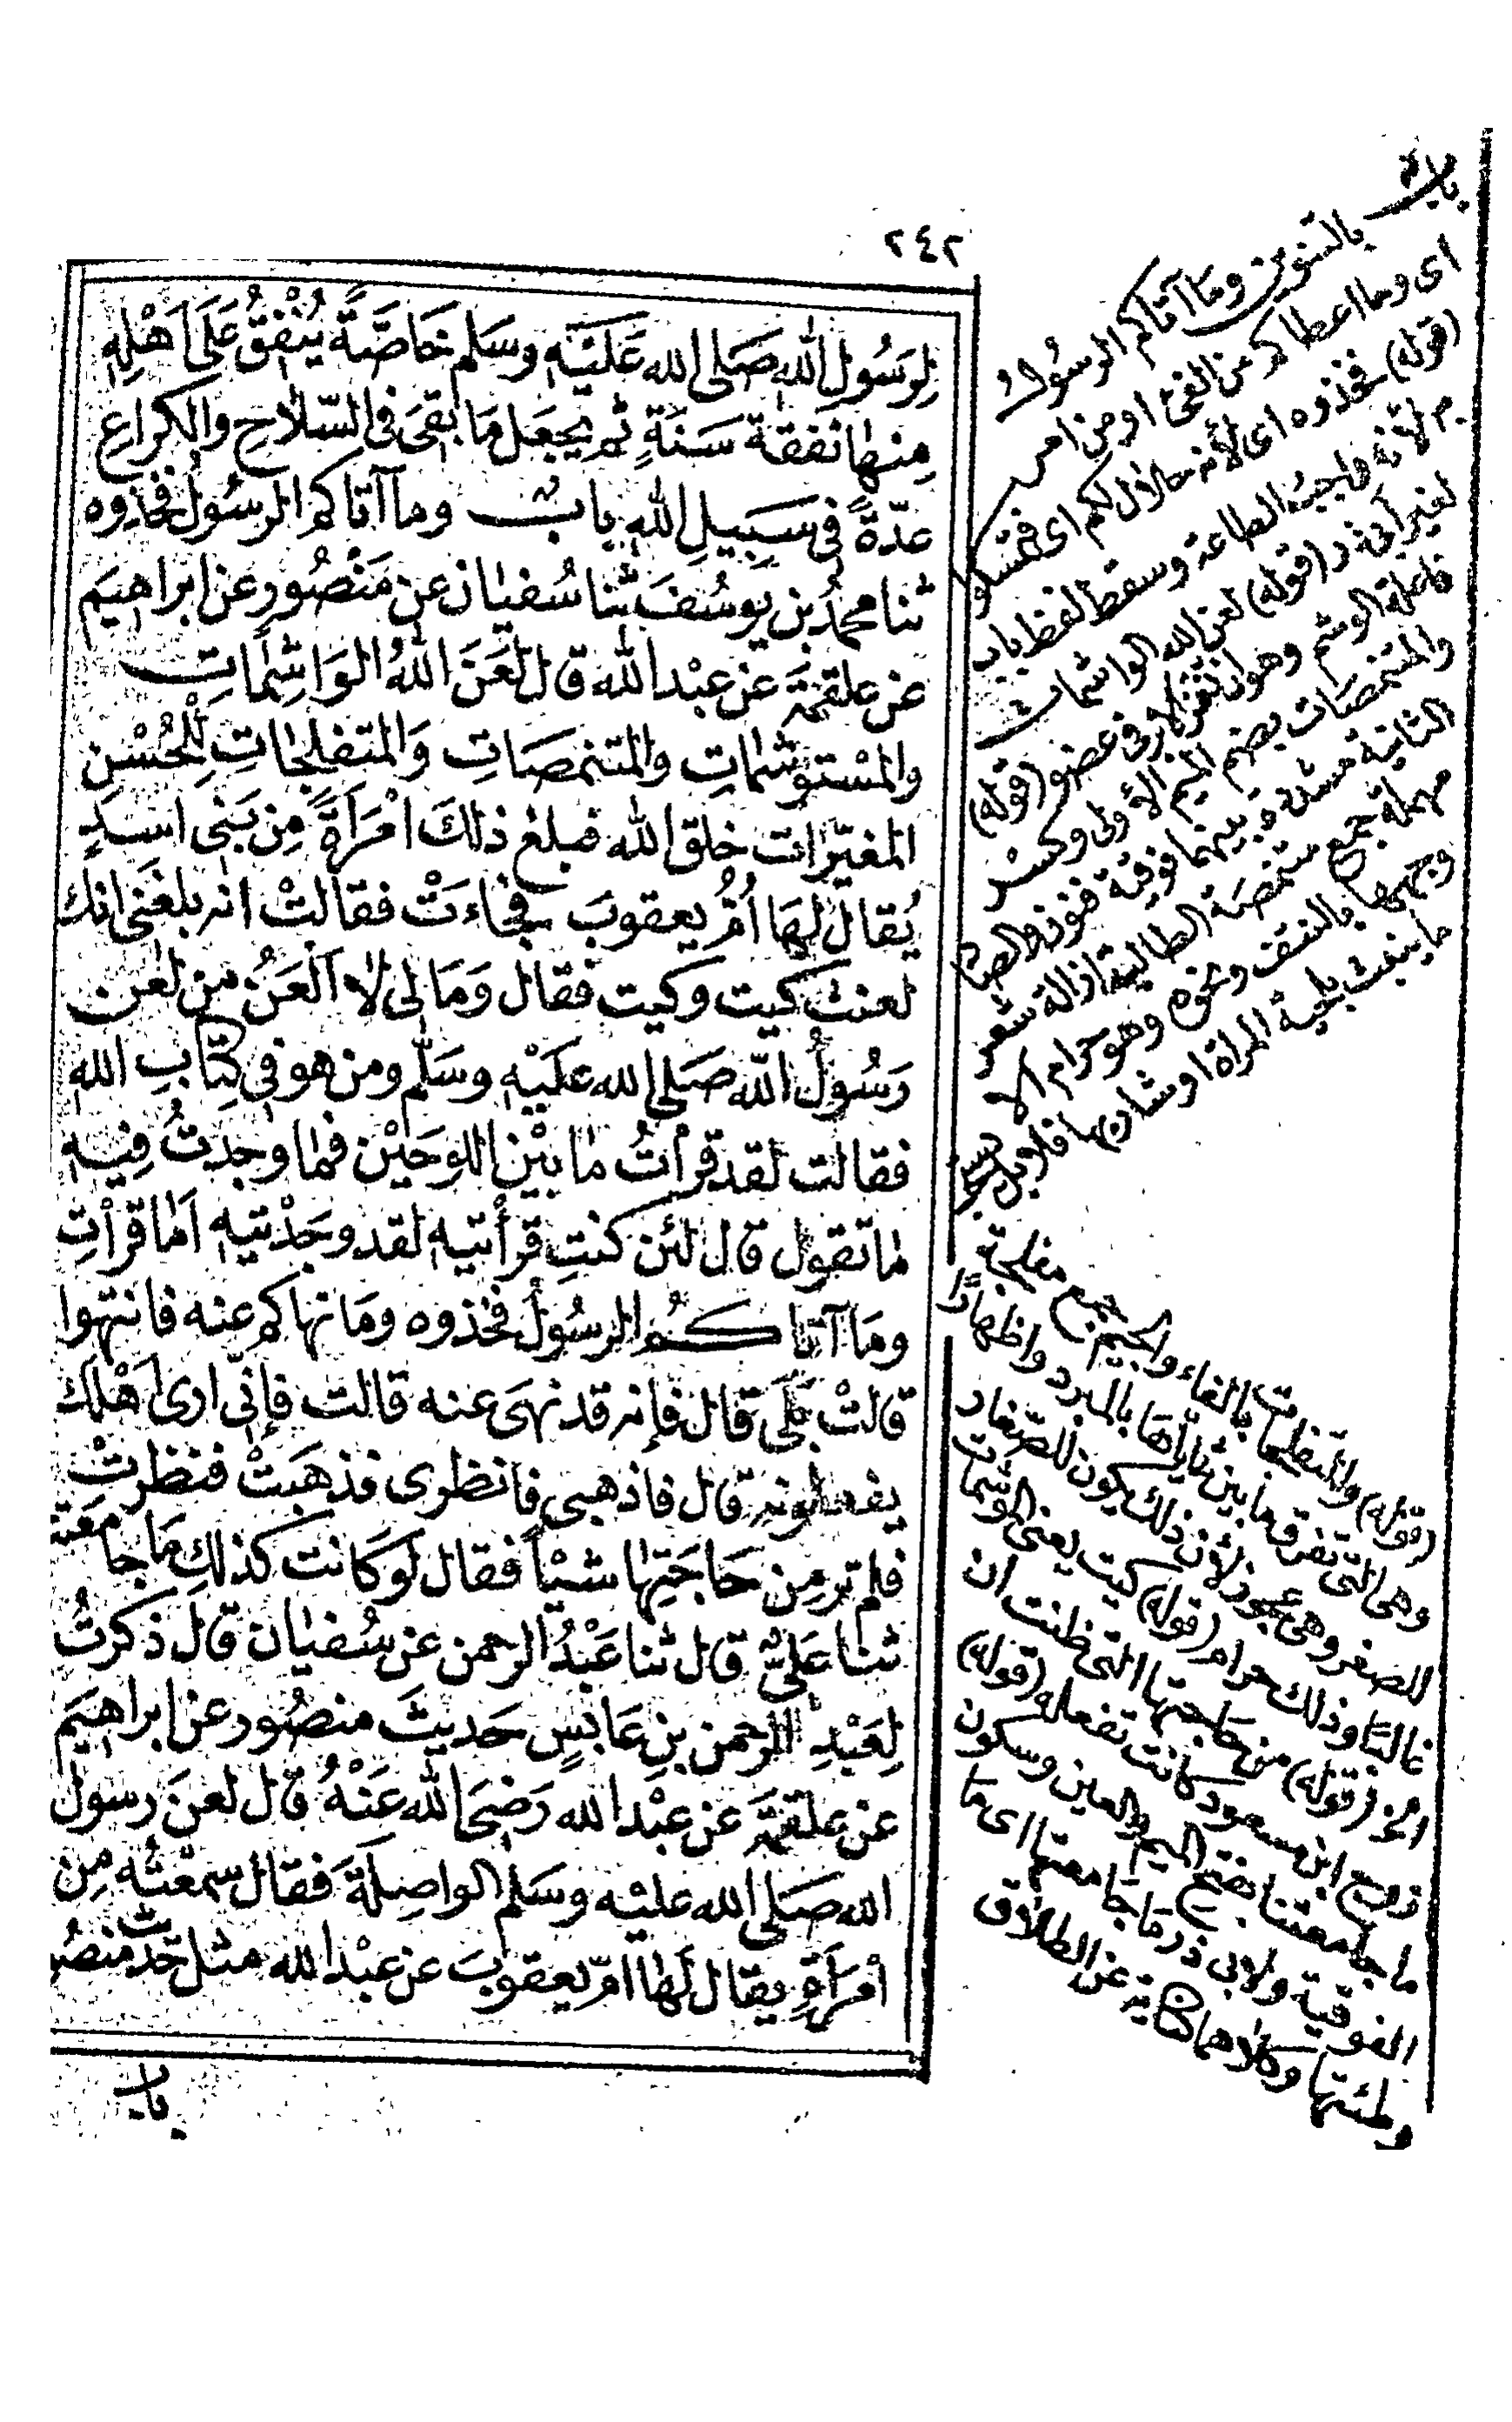 ٢٤٢
لِرَسُولِ اللهِ صَلى الله عَلَيْهِ وسَلم خَاصَّةً يُنْفِقُ عَلَى اَهْلِهِ
مِنها نَفَقَةَ سَنَةٍ ثم يجعَل مَا بَقىَ فى السّلَاحِ والكراعِ
عدّةً فى سَبِيلِ اللهِ باب وما آتاكم الرسُولُ فخذوه
ثنا محمدُ بن يوسُفَ ثنا سُفيان عن مَنْصُور عن ابراهيمَ
عن علقمَةَ عن عبْد الله قال لعَنَ اللهُ الوَاشِمَاتِ
والمسْتوشمَاتِ والمتنمصَاتِ وَالمتفلجَاتِ لِلْحُسْنِ
المغيّرات خلق الله فبلغ ذلكَ امْرَاةً مِن بَنى اسَدٍ
يُقال لهَا اُمُّ يعقوبَ فجَاءَتْ فقالتْ انه بلغنى انك
لعنت كيت وكيت فقال وَمَا لى لا اَلعَنُ من لعن
رَسُولُ اللهِ صَلى الله عَليْهِ وسَلّم ومن هو فى كِتَابِ الله
فقالت لقد قرأتُ مَا بَيْن اللوحَيْن فما وجدتُ فِيهِ
ما تقول قال لئن كنتِ قرأتيه لقد وجَدْتيه اَمَا قرأتِ
ومَا آتاكُم الرسُولُ فخذوه ومَا نهاكم عنه فانتهوا
قالتْ بَلَى قال فإنه قد نهَى عنه قالت فإنّى ارى اَهْلك
يفعلونه قال فاذهبى فانظرى فذهبَتْ فنظرتْ
فلم تر مِن حَاجَتِها شيْاً فقال لو كانت كذلكِ مَا جَامعتنا
ثنا عَلىٌّ قال ثنا عَبْدُ الرحمن عن سُفيان قال ذكرتُ
لِعَبْدِ الرحمن بنِ عَابسٍ حَديثَ منصُور عن ابراهيَم
عن علقمَةَ عن عبْد الله رَضىَ الله عَنْهُ قال لعنَ رسول
الله صَلى الله عليْه وسَلم الواصِلةَ فقال سمعْتُه مِن
اْمرَأةٍ يقال لهَا امّ يعقوبَ عن عبْد الله مثل حَديث منصُور
باب
باب
بالتنوين وما آتاكم الرسُولُ
اى وما اعطاكم من الفئ او من امر
(قوله) فخذوه اى لأنه حلال لكم اى فتمسكوا
به لأنه واجبُ الطاعة وسقط لفظ باب
لغير ابى ذر (قوله) لعن الله الواشمات
فاعلة الوشم وهو ان فى عضو (قوله)
والمتنمصات بضم الميم الأولى وكسْر
الثانية مشددة بينهما فوقية فنون والصاد
مهملة جمع متنمصَة الطالبة ازالة شعر
وجهها بالنتف ونحوه وهو حرام الا
ما ينبت بلحية المرأة او شاربها فلا بل يستحب
(قوله) والمتفلجات بالفاء والجيم جمع مفلجة
وهى التى تفرق ما بين ثناياهَا بالمبرد واظهارًا
للصغر وهى عجوز لأن ذلك يكون للصّغار
غالبًا وذلك حرام (قوله) كيت يعنى الوشمات
الخ (قوله) من حَاجتها التى ظنت ان
زوج ابن مسعود كانت تفعله (قوله)
ما جامعتنا بفتح الميم والعين وسكون
الفوقية ولابى ذر مَا جَامعتها اى ما
وطئتها وكلاهما كناية عن الطلاق